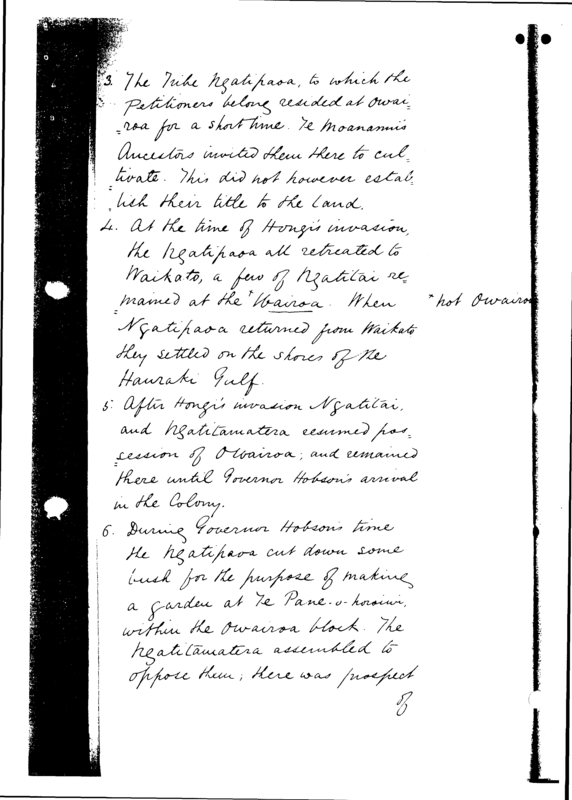 3. The Tribe Ngatipaoa, to which the
Petitioners belong resided at Owai=
=roa for a short time. Te Moananui's
Ancestors invited them there to cul=
tivate. This did not however estab=
=lish their title to the land.
4. At the time of Hongi's invasion,
the Ngatipaoa all retreated to
Waikato, a few of Ngatitai re=
mained at the *Wairoa. When *not Owairoa
Ngatipaoa returned from Waikato
they settled on the shores of the
Hauraki Gulf.
5. After Hongi's invasion Ngatitai,
and Ngatitamatera resumed pos=
=session of Owairoa; and remained
there until Governor Hobson's arrival
in the Colony.
6. During Governor Hobson's time
the Ngatipaoa cut down some
bush for the purpose of making
a garden at Te Pane-o-horoiwi,
within the Owairoa block. The
Ngatitamatera assembled to
oppose them; there was prospect
of